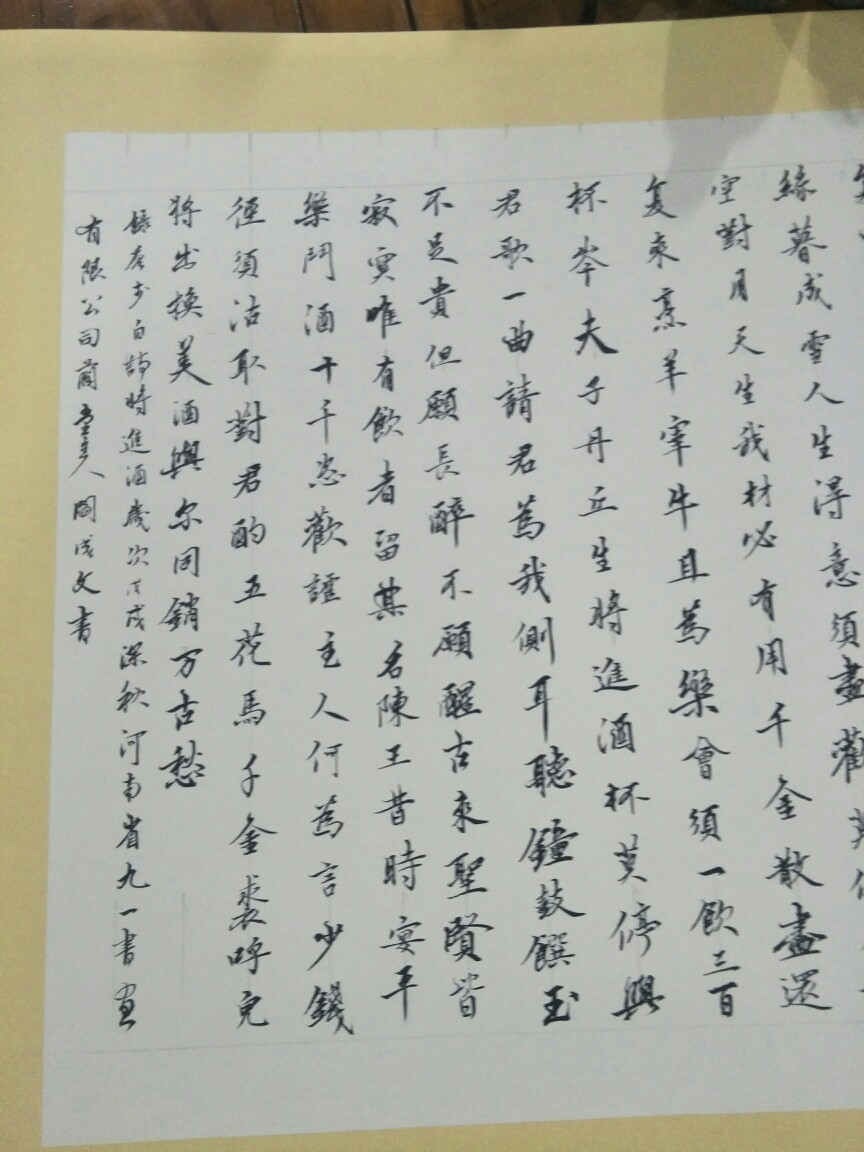 絲暮成雪人生得意須盡歡莫
空對月天生我材必有用千金散盡還
复來烹羊宰牛且為樂會須一飲三百
杯岑夫子丹丘生將進酒杯莫停與
君歌一曲請君為我側耳聽鐘鼓饌玉
不足貴但願長醉不願醒古來聖賢皆
寂寞唯有飲者留其名陳王昔時宴平
樂鬥酒十千恣歡謔主人何為言少錢
徑須沽取對君酌五花馬千金裘呼兒
將出換美酒與尔同銷万古愁
錄李白詩將進酒歲次戊戌深秋河南省九一書画
有限公司 閆成文書